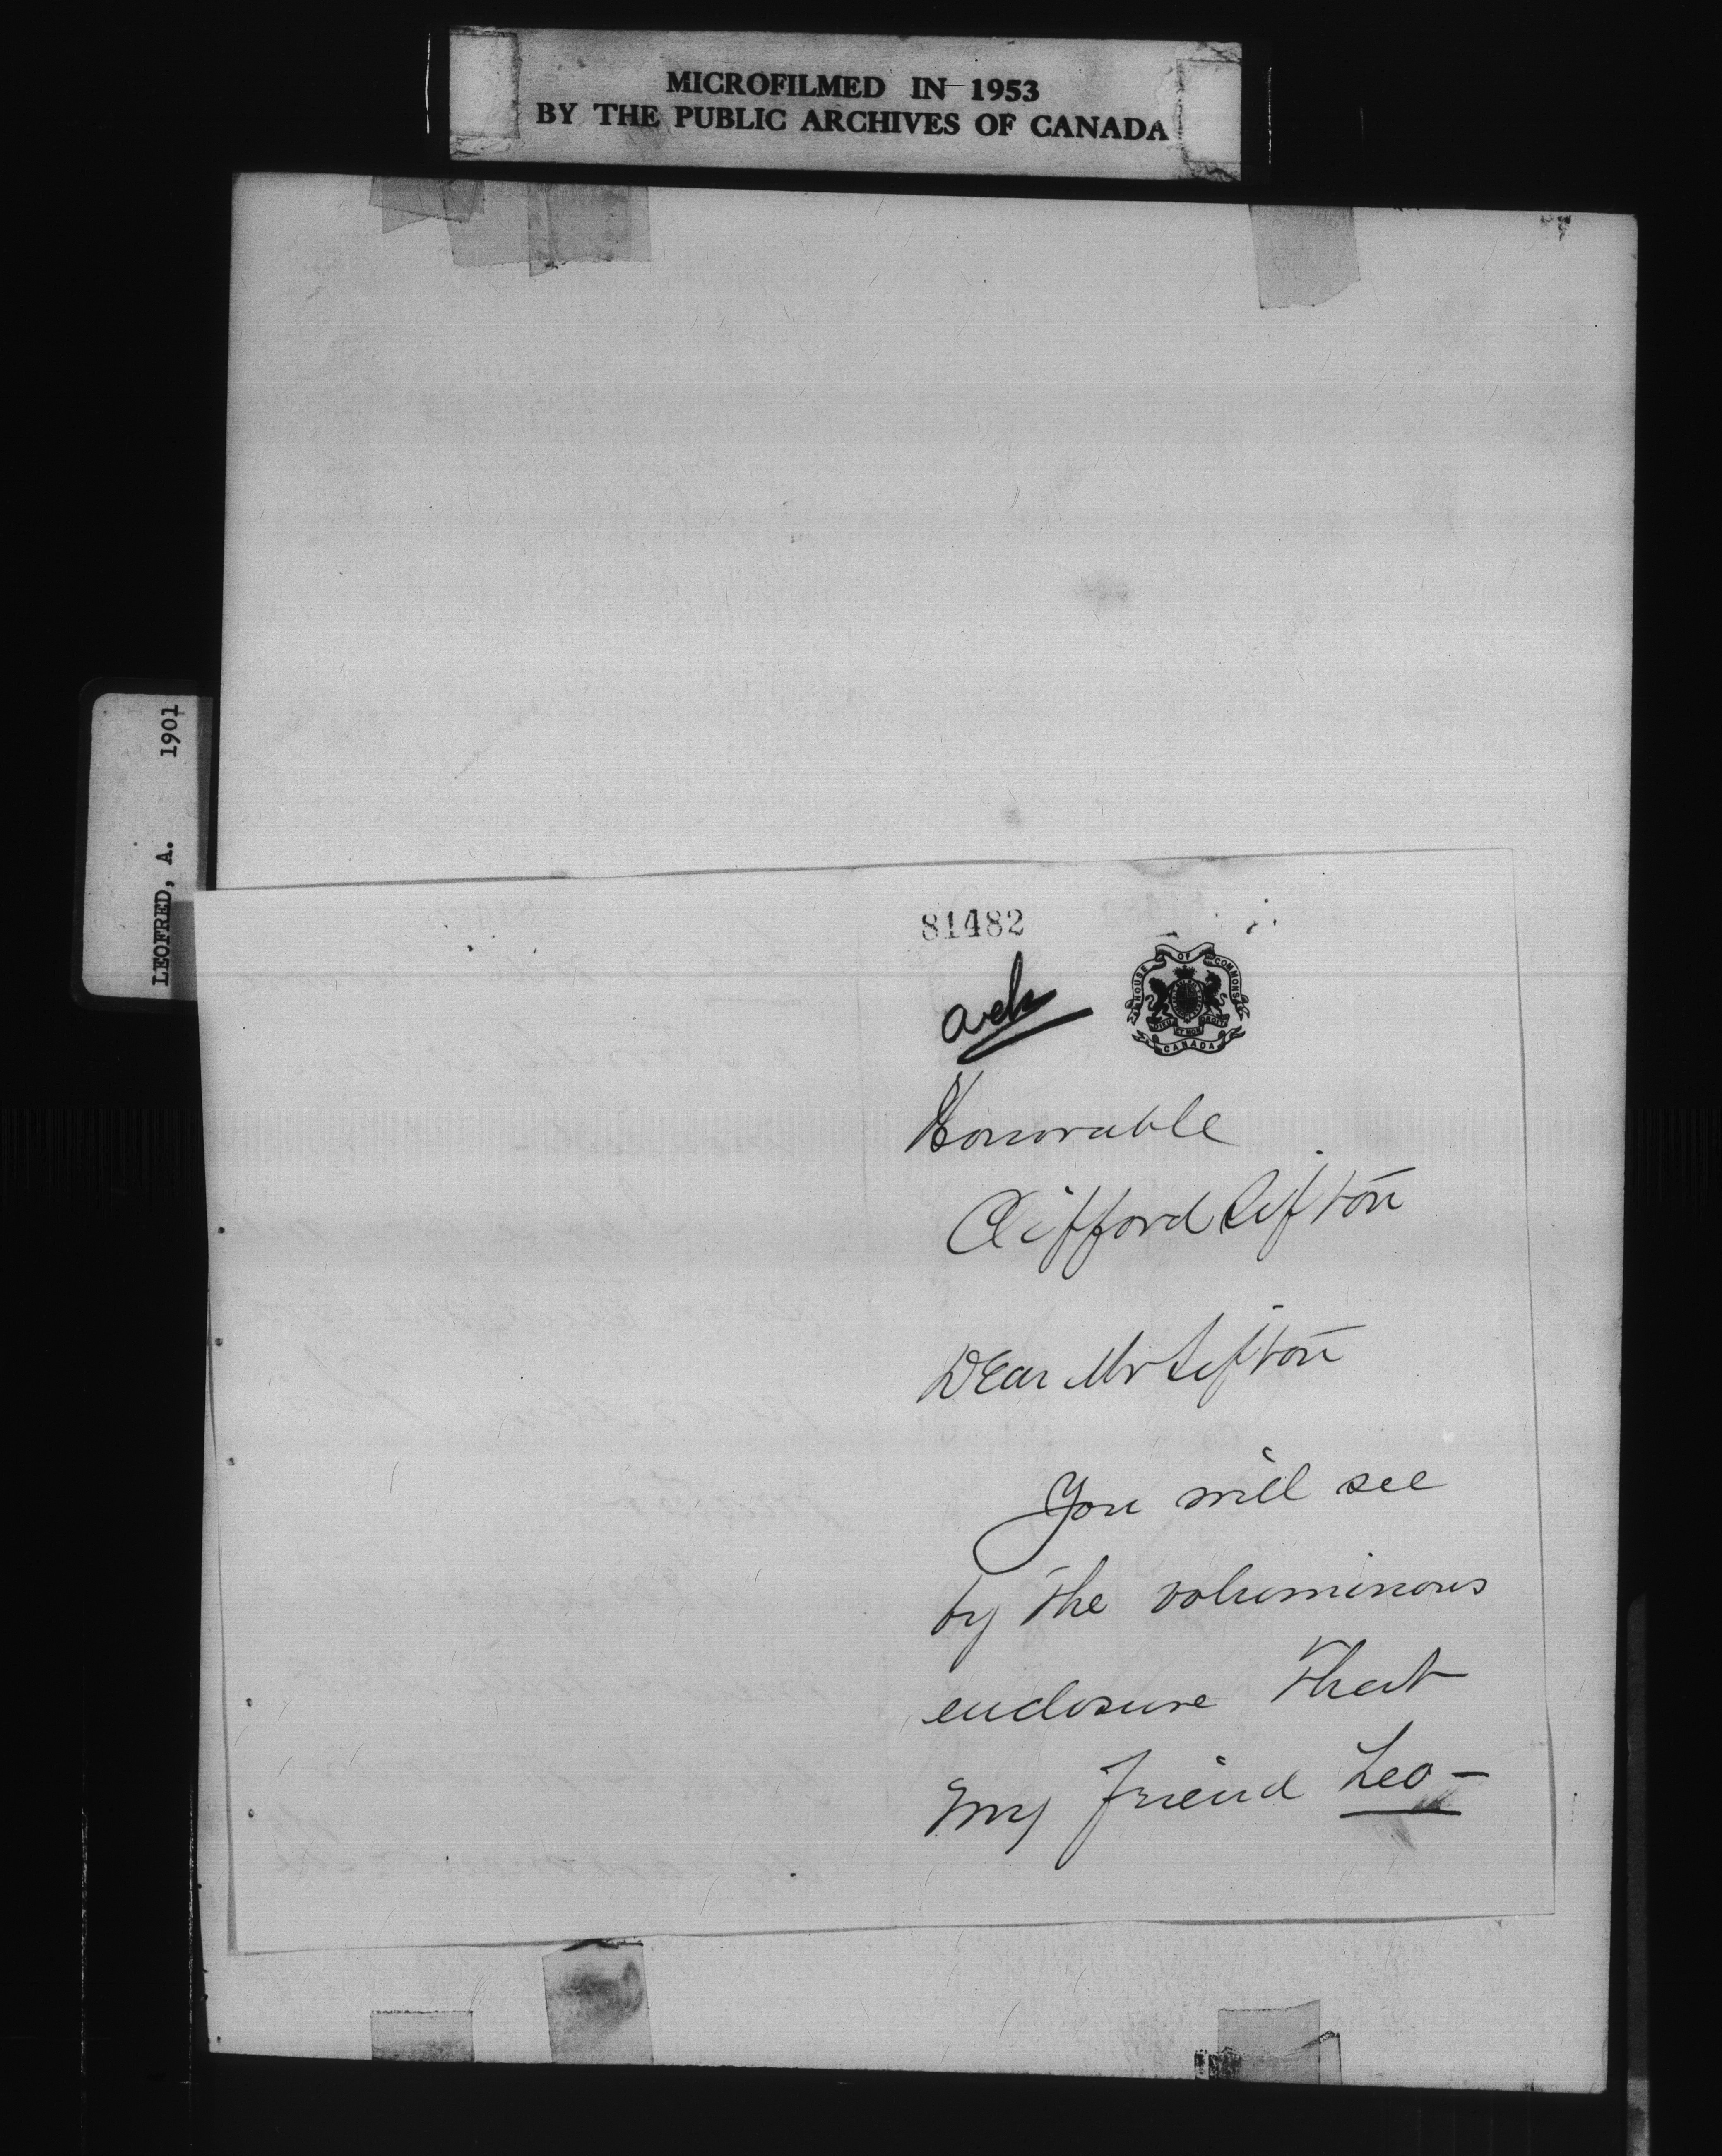 MICROFILMED IN 1953
BY THE PUBLIC ARCHIVES OF CANADA
LEOFRED, A. 1901
81482
ack
HOUSE OF COMMONS
DIEU ET MON DROIT
CANADA
Honorable
Clifford Sifton
Dear Mr Sifton
You will see
by the voluminous
enclosure that
my friend Leo-